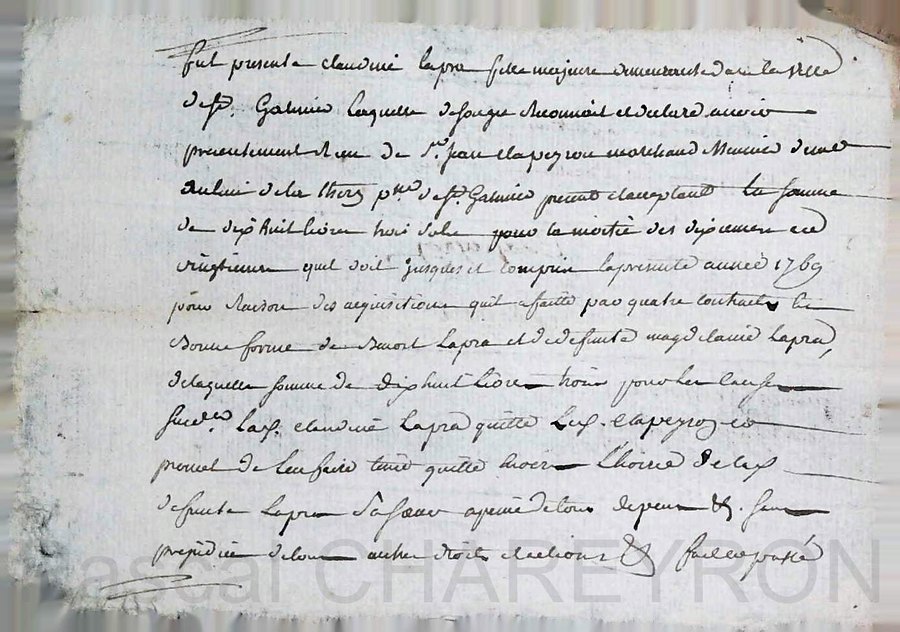 fut presente claudine lapra fille majeure demeurante dans la ville
de st. Galmier laquelle de son gre reconnoit et declare avoir
presentement Reçu de Sr. jean clapeyron marchand
de la pnt. de st. Galmier present et acceptant la somme
de dix huit livres trois sols pour la moitié des dixiemes et
vingtiemes quel doit jusques et comprin la presente année 1769
pour Raison des acquisitions quil a faitte par quatre contracts en
Bonne forme de Benoit Lapra et de defunte magdelaine Lapra,
de laquelle somme de dix huit livres trois sols pour les causes
susd. la d. claudine Lapra quitte led. clapeyron et
promet de len faire tenir quitte envers L'hoirie de la d.
defunte Lapra Sa soeur a peine de tous depens &. sans
prejudice de tous autres droits et actions & fait et passé
Pascal CHAREYRON